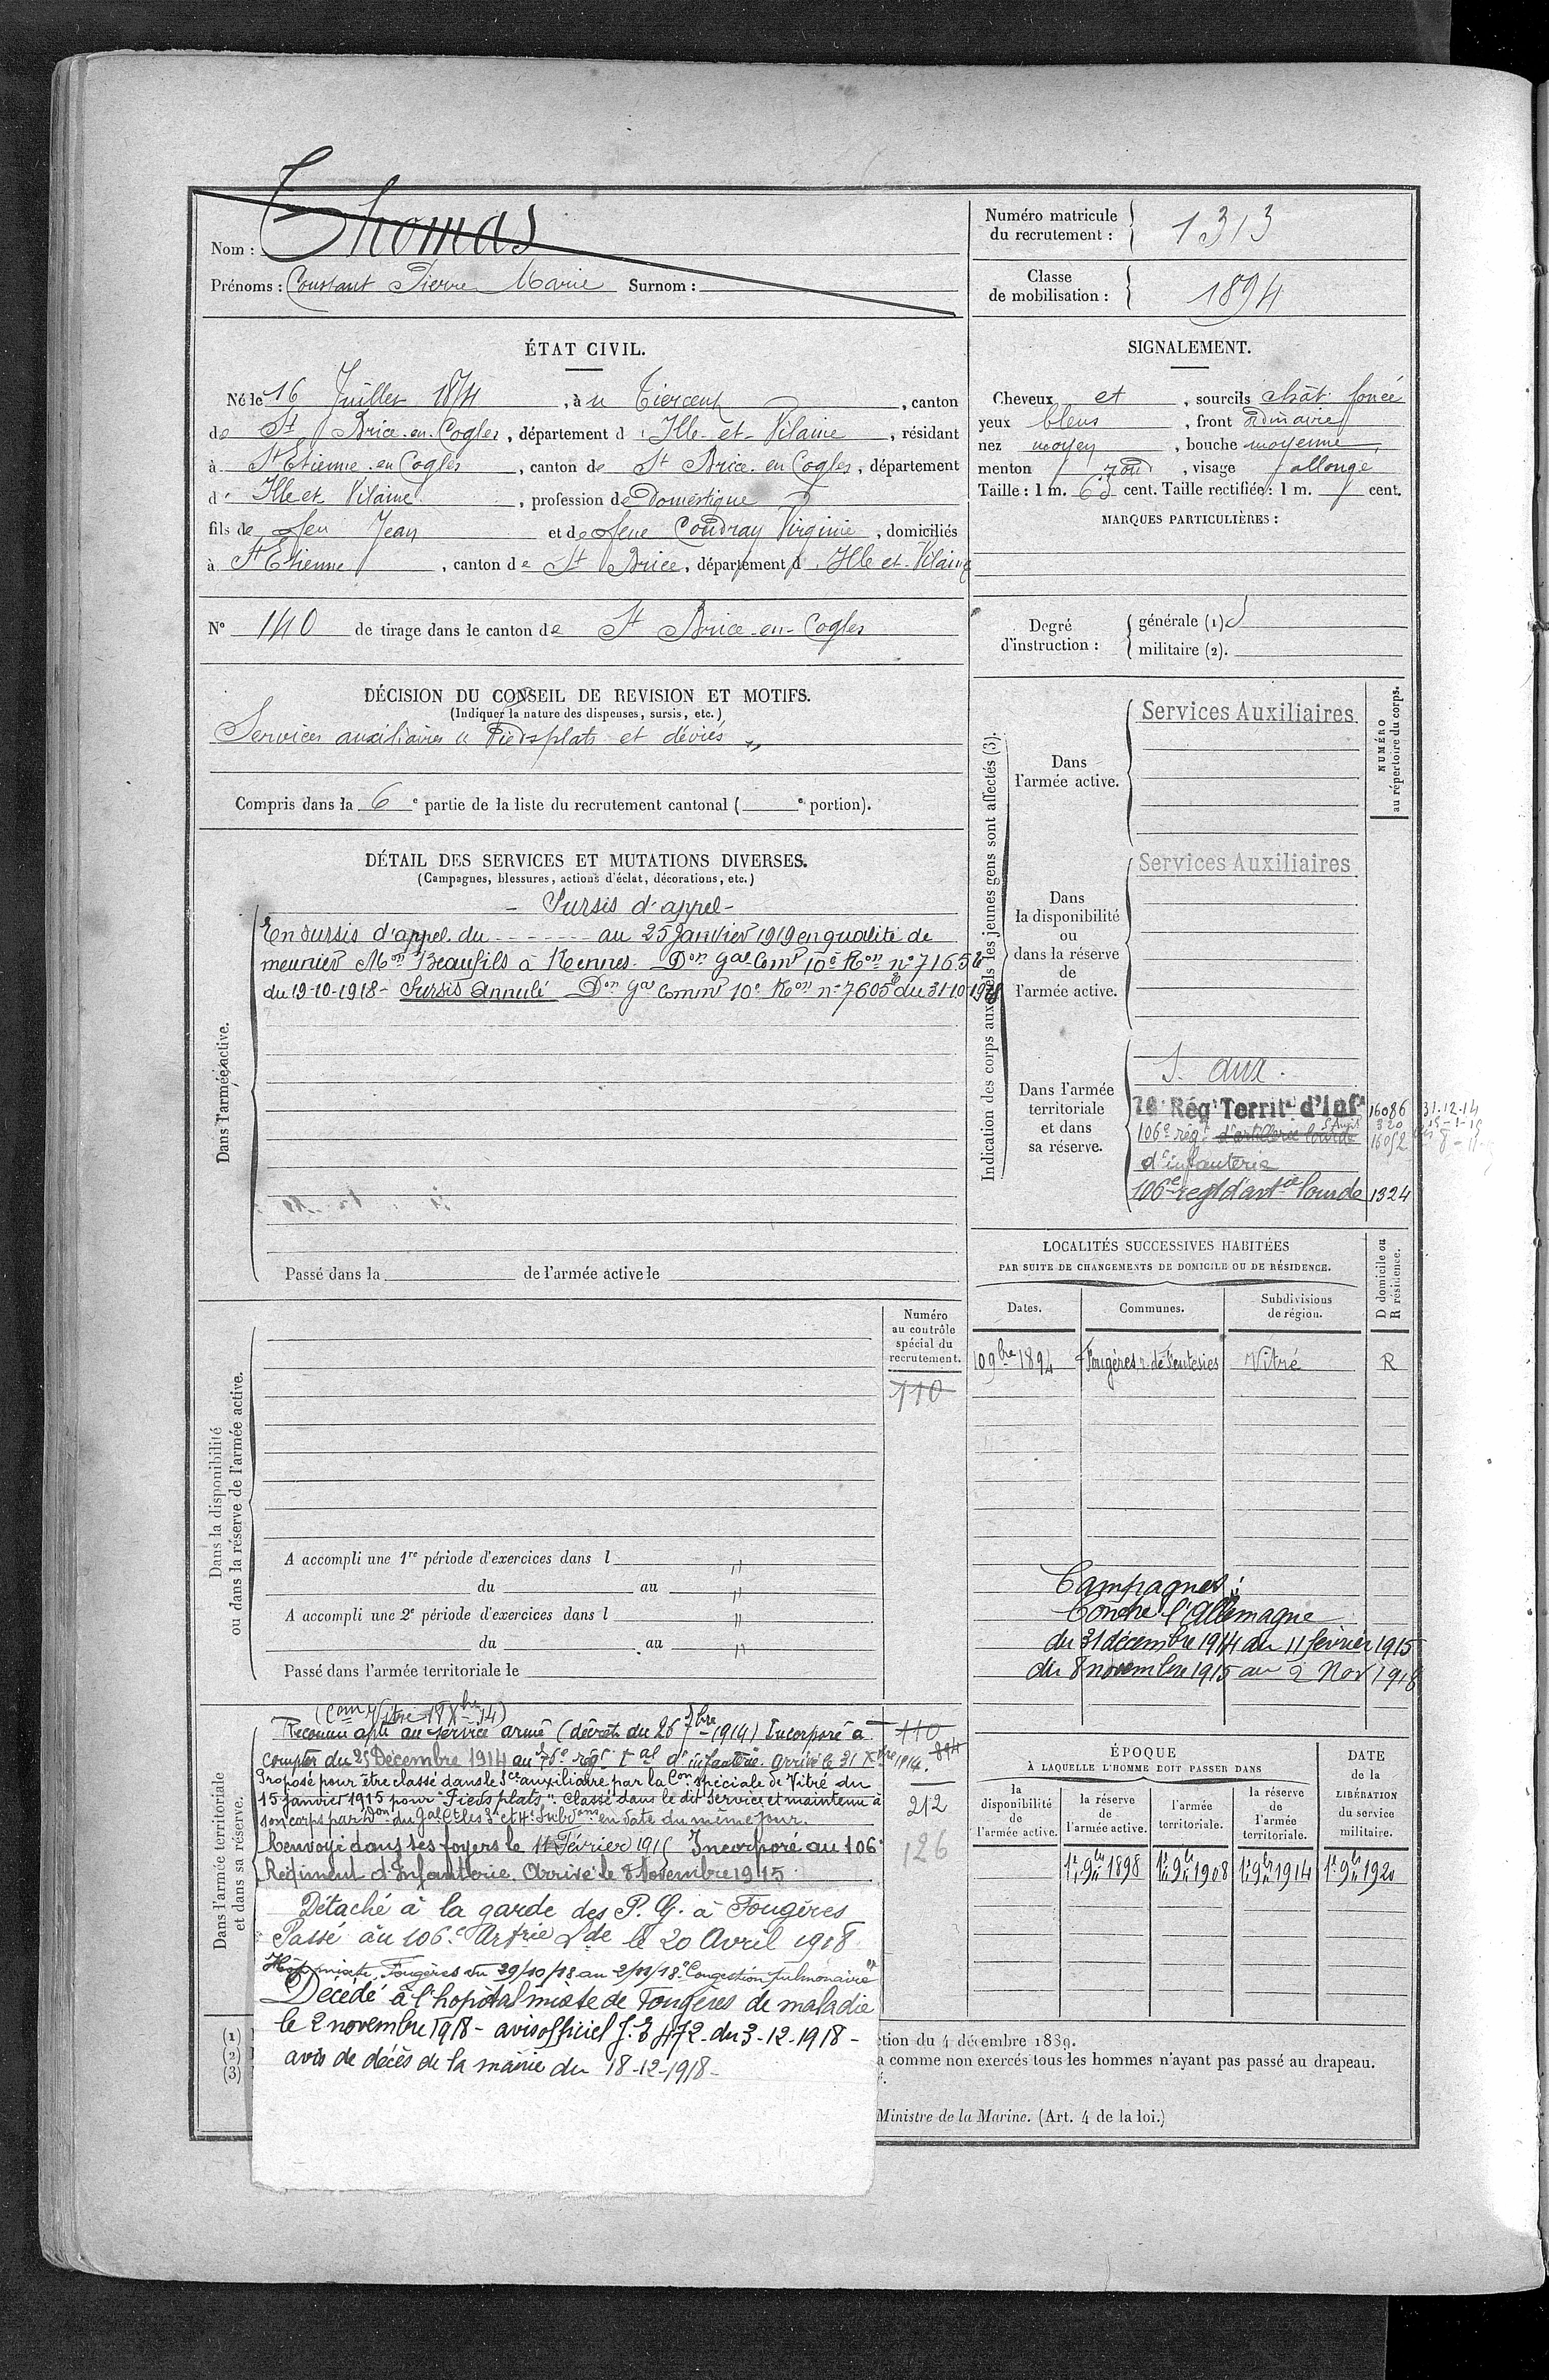 Nom : Thomas
Prénoms : Constant Pierre Marie Surnom :
Numéro matricule du recrutement : 1313
Classe de mobilisation : 1894
ÉTAT CIVIL.
Né le 16 Juillet 1874, à Tiercent, canton
de St Brice-en-Cogles, département d'Ille-et-Vilaine, résidant
à St Etienne en Cogles, canton de St Brice en Cogles, département
d'Ille et Vilaine, profession de Domestique
fils de feu Jean et de feue Coudray Virginie, domiciliés
à St Etienne, canton de St Brice, département d'Ille et-Vilaine
N° 140 de tirage dans le canton de St Brice-en-Cogles
SIGNALEMENT.
Cheveux et, sourcils chât foncé
yeux bleus, front ordinaire
nez moyen, bouche moyenne,
menton rond, visage allongé
Taille : 1 m. 63 cent. Taille rectifiée : 1 m. cent.
MARQUES PARTICULIÈRES :
Degré d'instruction : générale (1) 3
militaire (2).
DÉCISION DU CONSEIL DE REVISION ET MOTIFS.
(Indiquer la nature des dispenses, sursis, etc.)
Services auxiliaires " Pieds plats et déviés "
Compris dans la 6e partie de la liste du recrutement cantonal ( e portion).
DÉTAIL DES SERVICES ET MUTATIONS DIVERSES.
(Campagnes, blessures, actions d'éclat, décorations, etc.)
Dans l'armée active.
- Sursis d'appel -
En sursis d'appel du - - - - au 25 Janvier 1919 en qualité de
meunier Mon Beaufils à Rennes. Don Gal Comt 10e Ron n° 7165 b
du 19-10-1918 - Sursis Annulé Don Gal Commt 10e Ron n° 7605 b du 31-10-1918
Passé dans la de l'armée active le
Indication des corps auxquels les jeunes gens sont affectés (3).
NUMÉRO au répertoire du corps.
Dans l'armée active.
Services Auxiliaires
Dans la disponibilité ou dans la réserve de l'armée active.
Services Auxiliaires
Dans l'armée territoriale et dans sa réserve.
S. aux.
76e Régt Territ. d'Infie 16086 31.12.14
106e régt d'artillerie lourde
d'infanterie
106e regt d'artie lourde 1324
LOCALITÉS SUCCESSIVES HABITÉES
PAR SUITE DE CHANGEMENTS DE DOMICILE OU DE RÉSIDENCE.
Dates. Communes. Subdivisions de région. D domicile ou R résidence.
10 9bre 1894 Fougères r. de Vitré R
Dans la disponibilité ou dans la réserve de l'armée active.
Numéro au contrôle spécial du recrutement.
110
A accompli une 1re période d'exercices dans l "
du au "
A accompli une 2e période d'exercices dans l "
du au "
Passé dans l'armée territoriale le
Campagnes :
Contre l'Allemagne
du 31 décembre 1914 au 11 février 1915
du 8 novembre 1915 au 2 Nov 1918
Dans l'armée territoriale et dans sa réserve.
(Con Vitré 18 Xbre 14)
Reconnu apte au service armé (décret du 26 7bre 1914) Incorporé à
compter du 25 Décembre 1914 au 76e régt tal d'infanterie. arrivé le 31 Xbre 1914.
Proposé pour être classé dans le Sce auxiliaire par la Con spéciale de Vitré du
15 janvier 1915 pour "Pieds plats". Classé dans le dit service et maintenu à
son corps par Don du Gal Ct les 3e et 4e Subdons en date du même jour.
Renvoyé dans ses foyers le 11 Février 1915 Incorporé au 106e
Régiment d'Infanterie. Arrivé le 8 Novembre 1915
110
894
212
126
Détaché à la garde des P. G. à Fougères
Passé au 106e Artrie Lde le 20 Avril 1918
Hôp. mixte. Fougères du 29/10/18 au 2/11/18. "Congestion pulmonaire"
Décédé à l'hopital mixte de Fougères de maladie
le 2 novembre 1918 - avis officiel J. E 472 - du 3-12-1918 -
avis de décès de la mairie du 18-12-1918 -
ÉPOQUE
À LAQUELLE L'HOMME DOIT PASSER DANS
la disponibilité de l'armée active. la réserve de l'armée active. l'armée territoriale. la réserve de l'armée territoriale.
DATE de la LIBÉRATION du service militaire.
1er 9bre 1898 1er 9bre 1908 1er 9bre 1914 1er 9bre 1920
(1)
(2)
(3)
ction du 4 décembre 1889.
a comme non exercés tous les hommes n'ayant pas passé au drapeau.
Ministre de la Marine. (Art. 4 de la loi.)